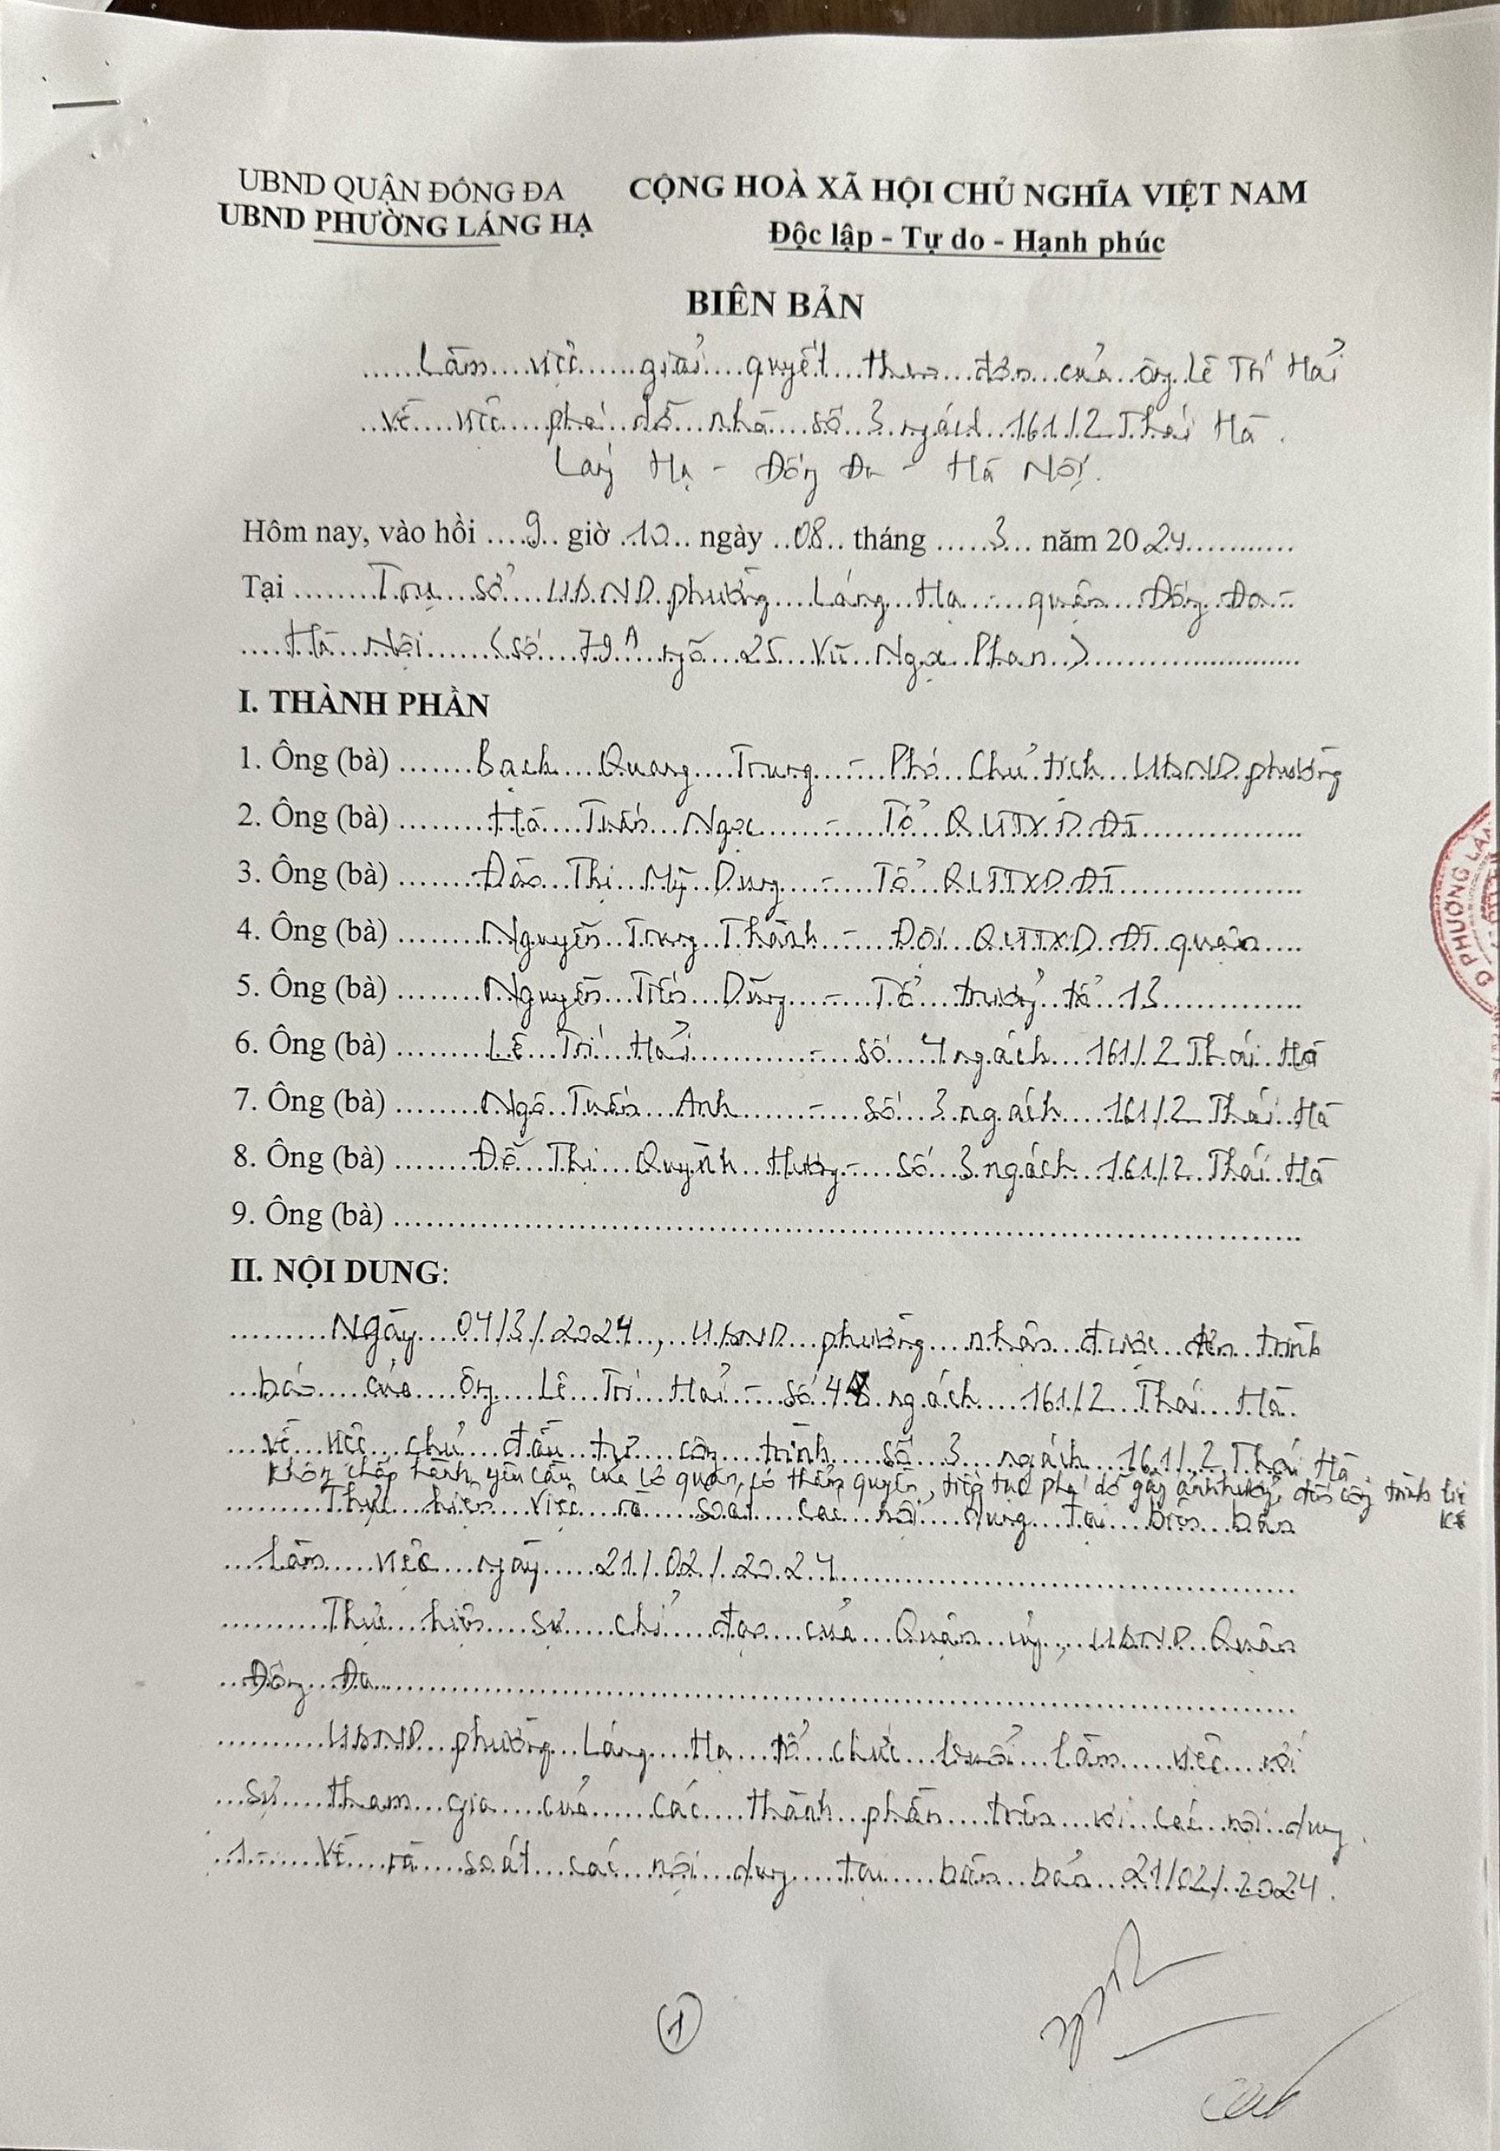 UBND QUẬN ĐỐNG ĐA
UBND PHƯỜNG LÁNG HẠ
CỘNG HOÀ XÃ HỘI CHỦ NGHĨA VIỆT NAM
Độc lập - Tự do - Hạnh phúc
BIÊN BẢN
Làm việc giải quyết theo đơn của ông Lê Trí Hải
về việc phá dỡ nhà số 3 ngách 161/2 Thái Hà.
Láng Hạ - Đống Đa - Hà Nội.
Hôm nay, vào hồi 9 giờ 10 ngày 08 tháng 3 năm 2024
Tại Trụ sở UBND phường Láng Hạ - quận Đống Đa -
Hà Nội (số 79A ngõ 25 Vũ Ngọc Phan)
I. THÀNH PHẦN
1. Ông (bà) Bạch Quang Trung - Phó Chủ tịch UBND phường
2. Ông (bà) Hà Tuấn Ngọc - Tổ QLTTXDĐT
3. Ông (bà) Đào Thị Mỹ Dung - Tổ QLTTXDĐT
4. Ông (bà) Nguyễn Trung Thành - Đội QLTTXD ĐT quận
5. Ông (bà) Nguyễn Tiến Dũng - Tổ trưởng tổ 13
6. Ông (bà) Lê Trí Hải - số 4 ngách 161/2 Thái Hà
7. Ông (bà) Ngô Tuấn Anh - số 3 ngách 161/2 Thái Hà
8. Ông (bà) Đỗ Thị Quỳnh Hương - số 3 ngách 161/2 Thái Hà
9. Ông (bà)
II. NỘI DUNG:
Ngày 04/3/2024, UBND phường nhận được đơn trình
báo của ông Lê Trí Hải - số 4 ngách 161/2 Thái Hà.
về việc chủ đầu tư công trình số 3 ngách 161/2 Thái Hà
không chấp hành yêu cầu của cơ quan có thẩm quyền, tiếp tục phá dỡ gây ảnh hưởng đến công trình liền
kề
Thực hiện việc rà soát các nội dung tại biên bản
làm việc ngày 21/02/2024
Thực hiện sự chỉ đạo của Quận ủy, UBND Quận
Đống Đa
UBND phường Láng Hạ tổ chức buổi làm việc với
sự tham gia của các thành phần trên với các nội dung.
1- Về rà soát các nội dung tại biên bản 21/02/2024.
1